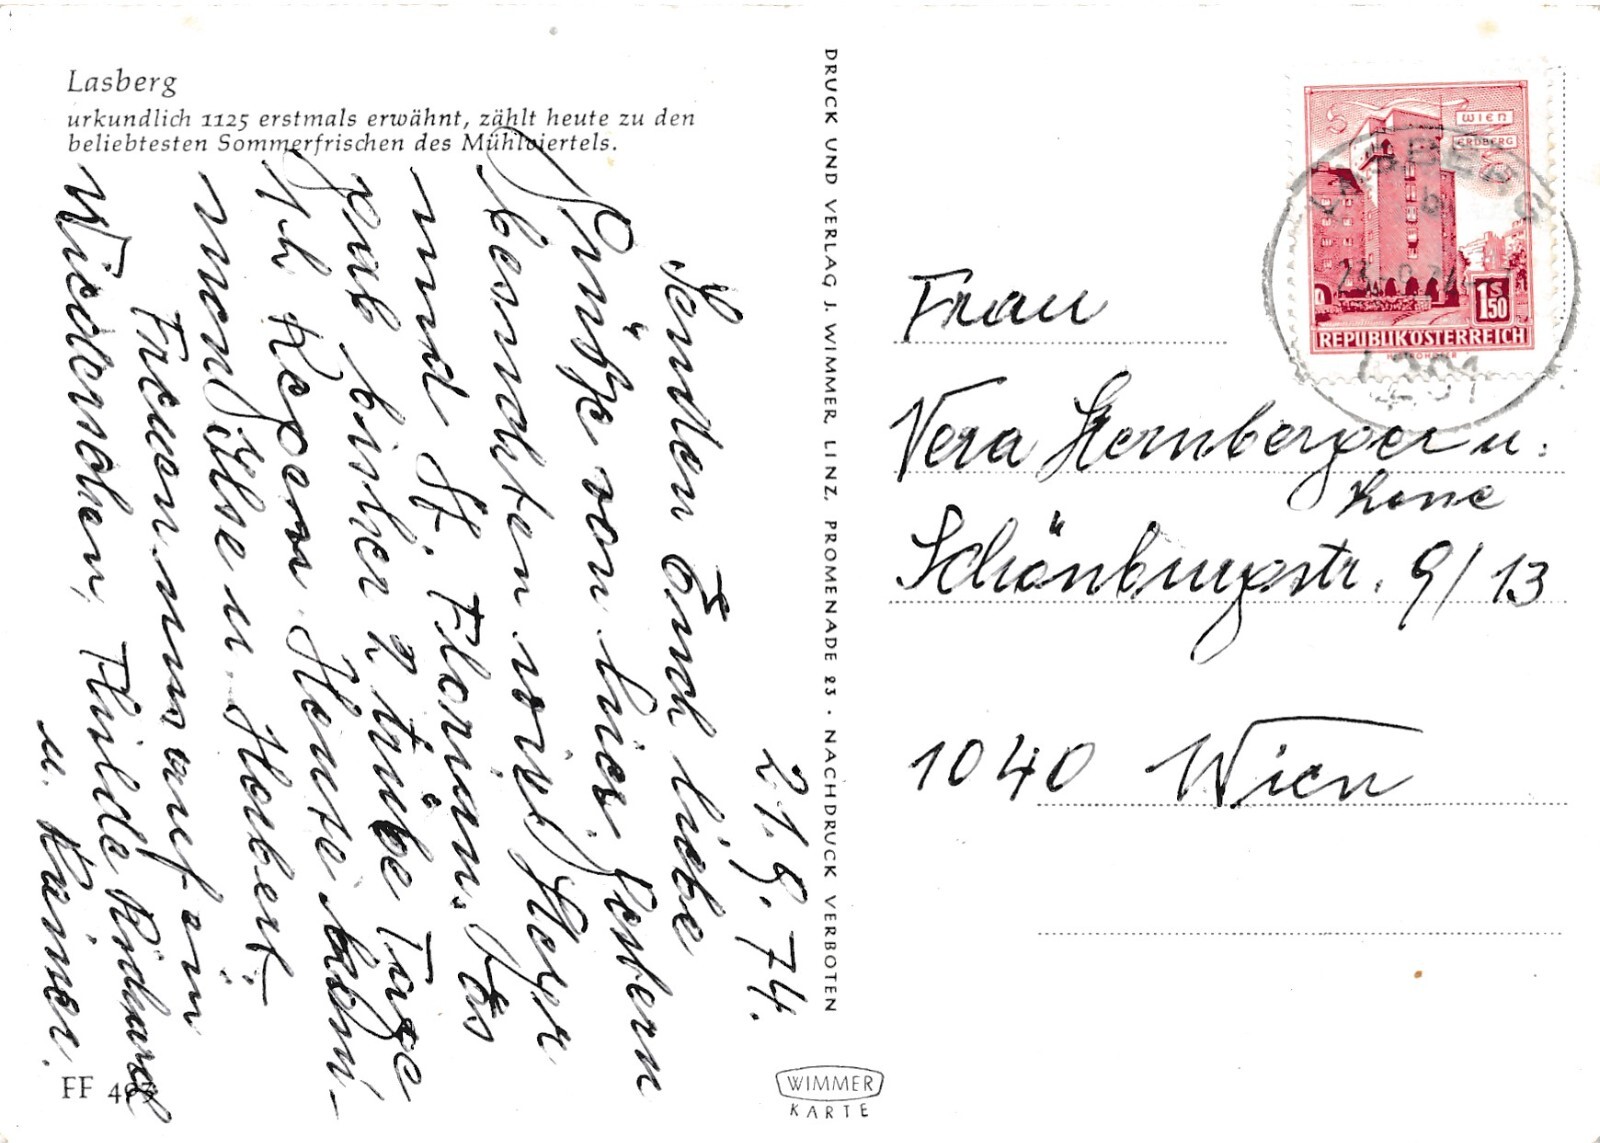 Lasberg
urkundlich 1125 erstmals erwähnt, zählt heute zu den
beliebtesten Sommerfrischen des Mühlviertels.
21.8.74.
Senden Euch liebe
Grüße von hier. Gestern
besuchten wir Steyr
und St. Florian. Es
gab bisher 2 trübe Tage
ph Regen. Heute kom-
men Ilse u. Herbert.
Freuen uns auf ein
Wiedersehen, Thilde Richard
u. Rainer.
FF 493
DRUCK UND VERLAG J. WIMMER, LINZ, PROMENADE 23 · NACHDRUCK VERBOTEN
WIMMER
KARTE
WIEN
ERDBERG
1S50
REPUBLIK ÖSTERREICH
LASBERG
4291
Frau
Vera Sternberger u.
Rene
Schönburgstr. 9/13
1040 Wien